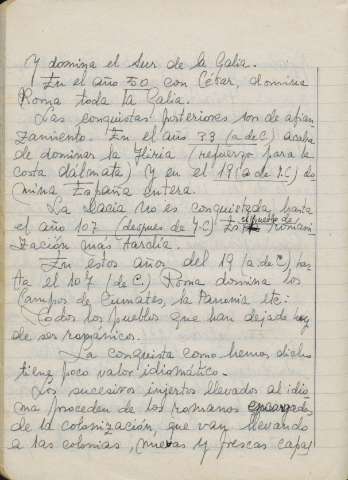 Y domina el Sur de la Galia.
En el año 50 con César, domina
Roma toda la Galia.
Las conquistas posteriores son de afian
zamiento. En el año 33 (a de C) acaba
de dominar la Iliria (refuerzo para la
costa dálmata) Y en el 19 (a de J.C) do
mina España entera.
La Dacia no es conquistada hasta
el año 107 (después de J-C) Es el pueblo de romani
zación más tardía.
En estos años del 19 (a. de C), has
ta el 107 (de C) Roma domina los
Campos de la Panonia etc:
Todos los pueblos que han dejado hoy
de ser románicos.
La conquista como hemos dicho
tiene poco valor idiomático.
Los sucesivos injertos llevados al idio
ma proceden de los romanos encargados
de la colonización, que van llevando
a las colonias, nuevas y frescas capas